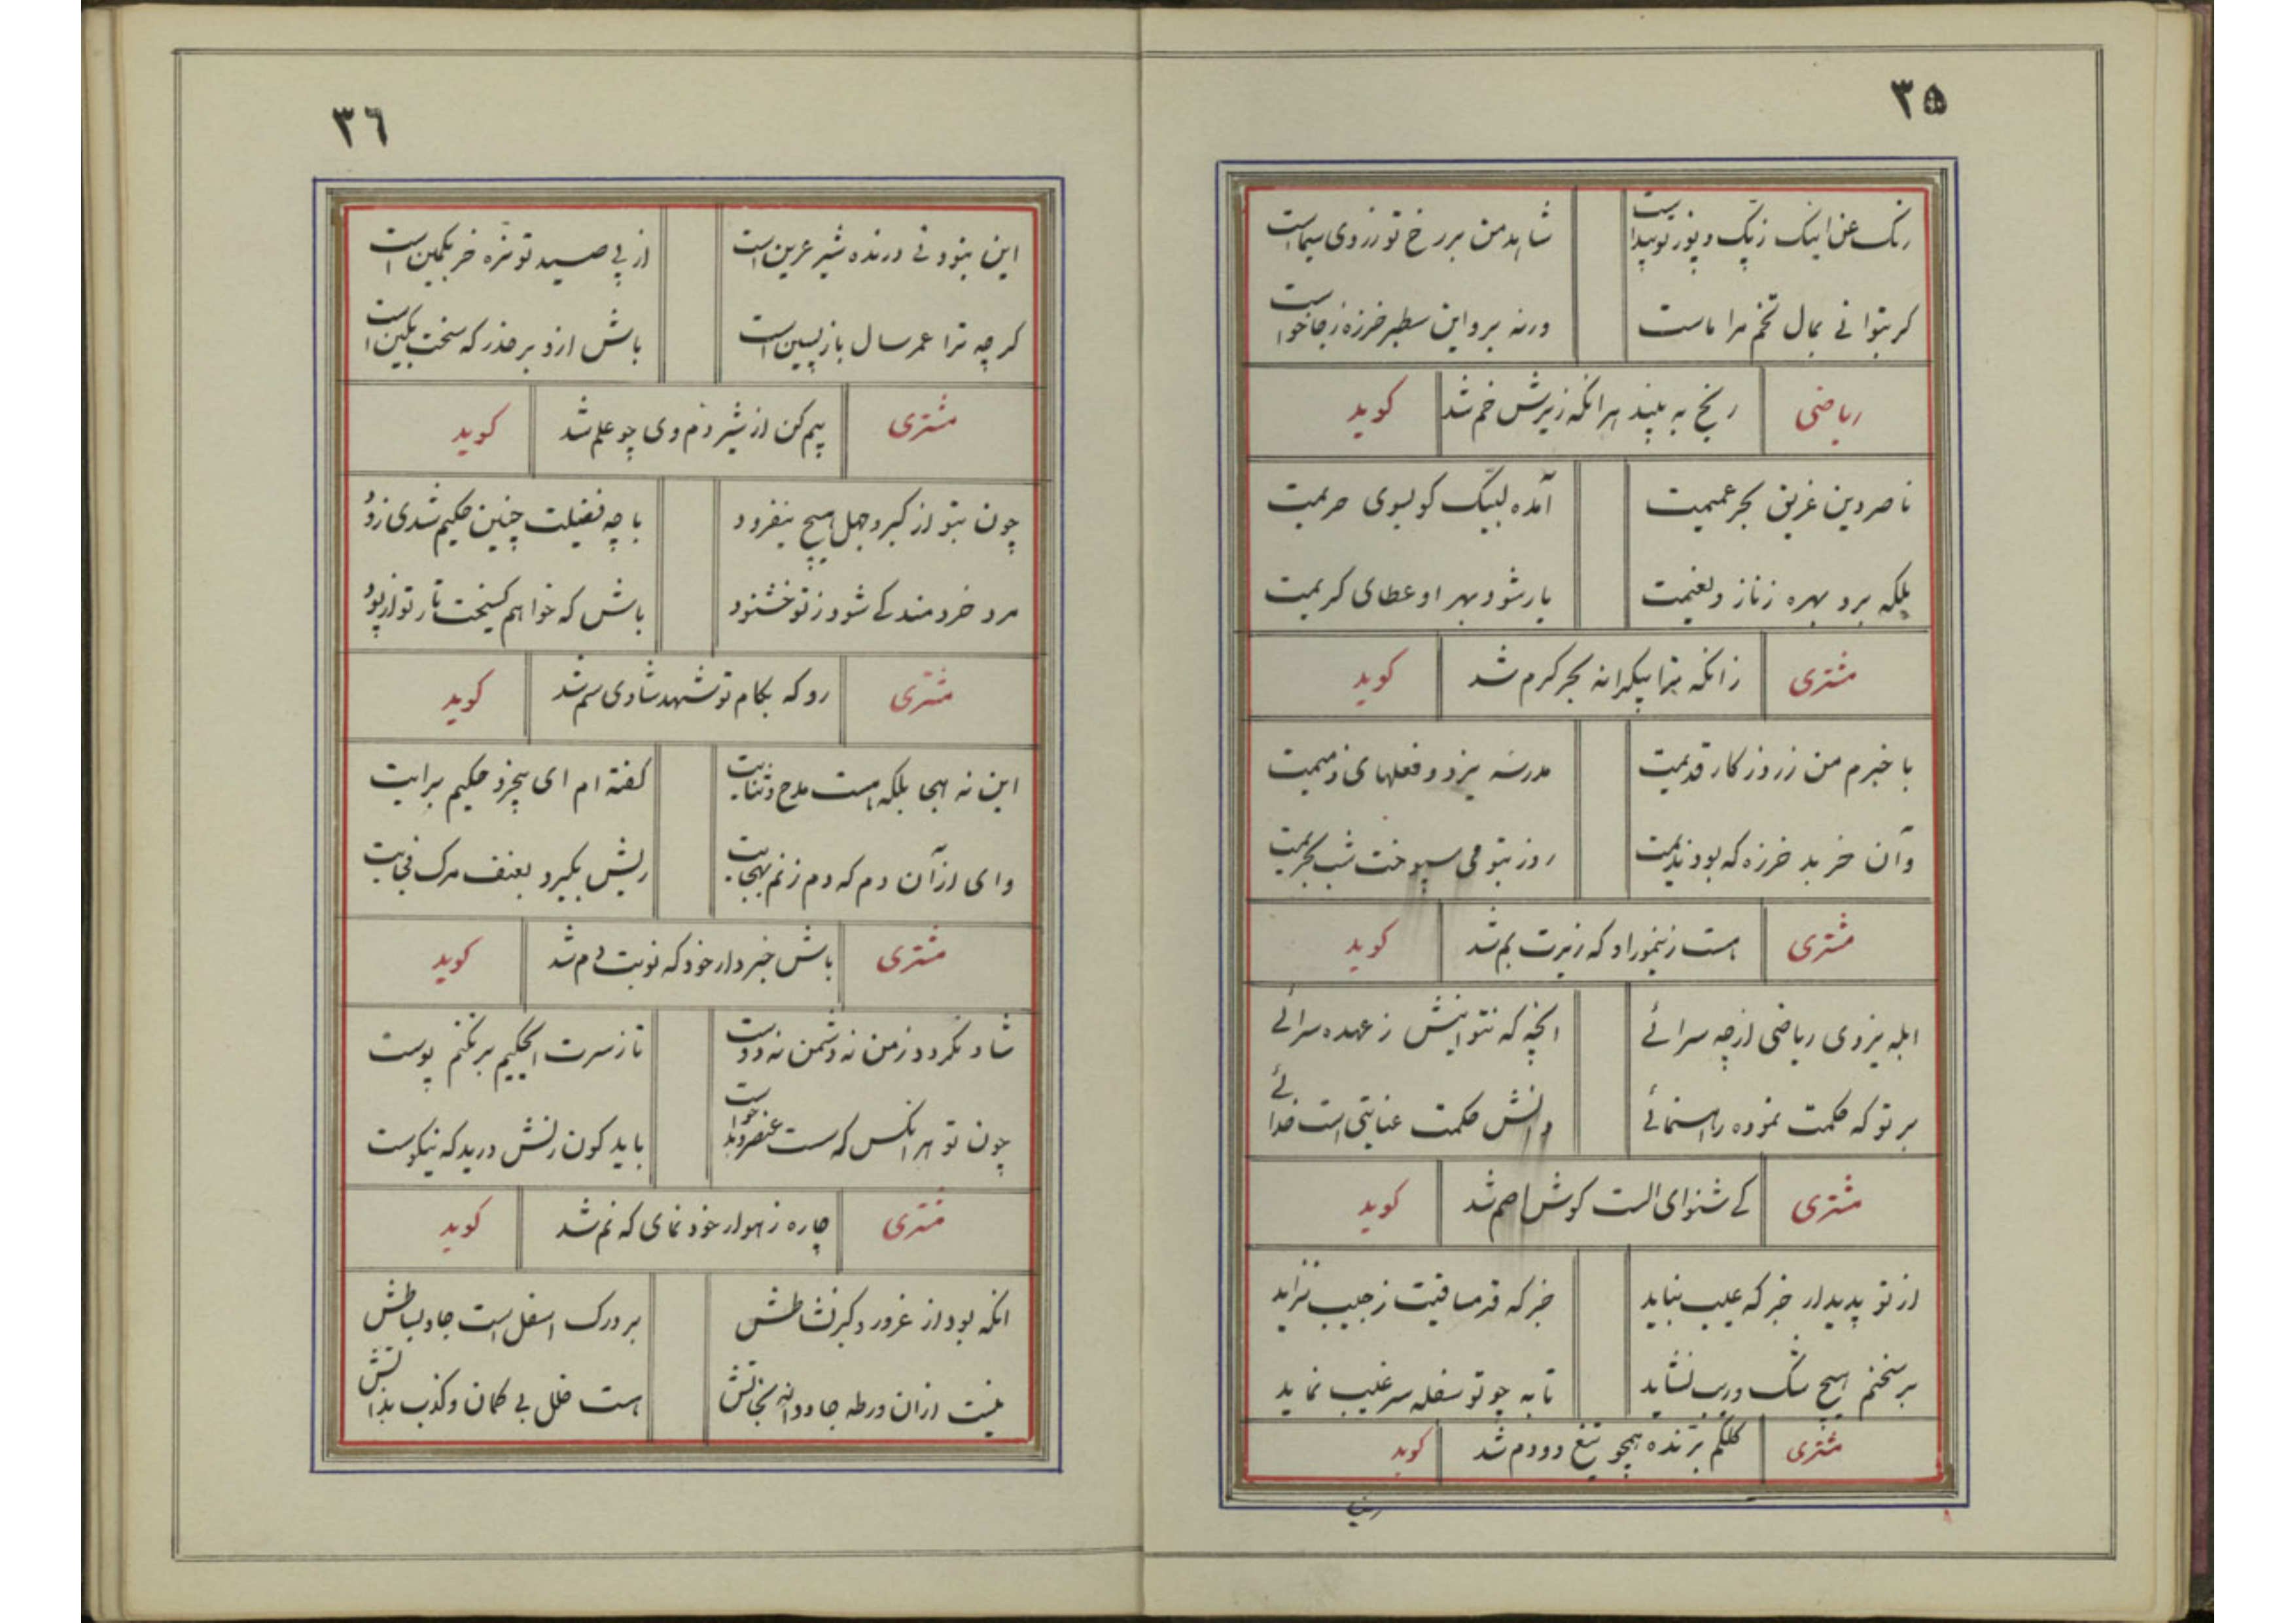 ۳۵
شاهد من بر رخ تو زردی سیماست
کر بتوانی بمال تخم مرا ماست
ورنه برو این سطبر خرزه زجا خواست
ریاضی رنج به بیند هرانکه زیرش خم شد کوید
ناصر دین غریق بحر عمیمت آمده لبیک کو بسوی حریمت
بلکه برد بهره زناز و نعیمت یار شود بهر او عطای کریمت
مشتری زانکه ترا بیکرانه بحر کرم شد کوید
با خبرم من ز روزکار قدیمت مدرسه یزد و فعلهای ذمیمت
وآن خر بد خرزه که بود ندیمت روز بتو می سپوخت شب بحریمت
مشتری هست زنیمور او که زیرت بم شد کوید
ابله یزدی ریاضی ازچه سرائے انچه که نتوانیش ز عهده برائے
بر تو که حکمت نموده راهنمائے دانش حکمت عنایتی است خدائے
مشتری کے شنوای الست کوش اصم شد کوید
از تو پدیدار خبر که عیب نیاید خبر که قرمساقیت ز جیب نزاید
بر سخنم هیچ شک و ریب نشاید تا به چو تو سفله سر غیب نماید
مشتری کلکم برنده همچو تیغ دو دم شد کوید
۳٦
این بنود نی درنده شیر عرین است از پی صید تو نره خر بکمین است
کرچه ترا عمر سال بازپسین است باش ازو بر حذر که سخت بکین است
مشتری بیم کن از شیر دم وی چو علم شد کوید
چون بتو از کبر و جهل هیچ بنفزود با چه فضیلت چنین حکیم شدی زود
مرد خردمند کے شود ز تو خشنود باش که خواهم کسیخت تار تو از پود
مشتری رو که بکام تو شهد شادی سم شد کوید
این نه هجا بلکه هست مدح و ثنایت کفته ام ای بیخرد حکیم برایت
وای ازآن دم که دم زنم بهجایت ریش بکیرد بعنف مرک فجایت
مشتری باش خبردار خود که نوبت دم شد کوید
شاد نکردد ز من نه دشمن نه دوست تا ز سرت الحکیم بر نکنم پوست
چون تو هرانکس که هست عنصر و بدخواست باید کون زنش درید که نیکوست
مشتری چاره زهوار خود نمای که نم شد کوید
انکه بود از غرور و کبر نشاطش بر درک اسفل است جاو بساطش
نیست ازان ورطه جاودانه نجاتش هست ظل بی کمان و کذب بذاتش